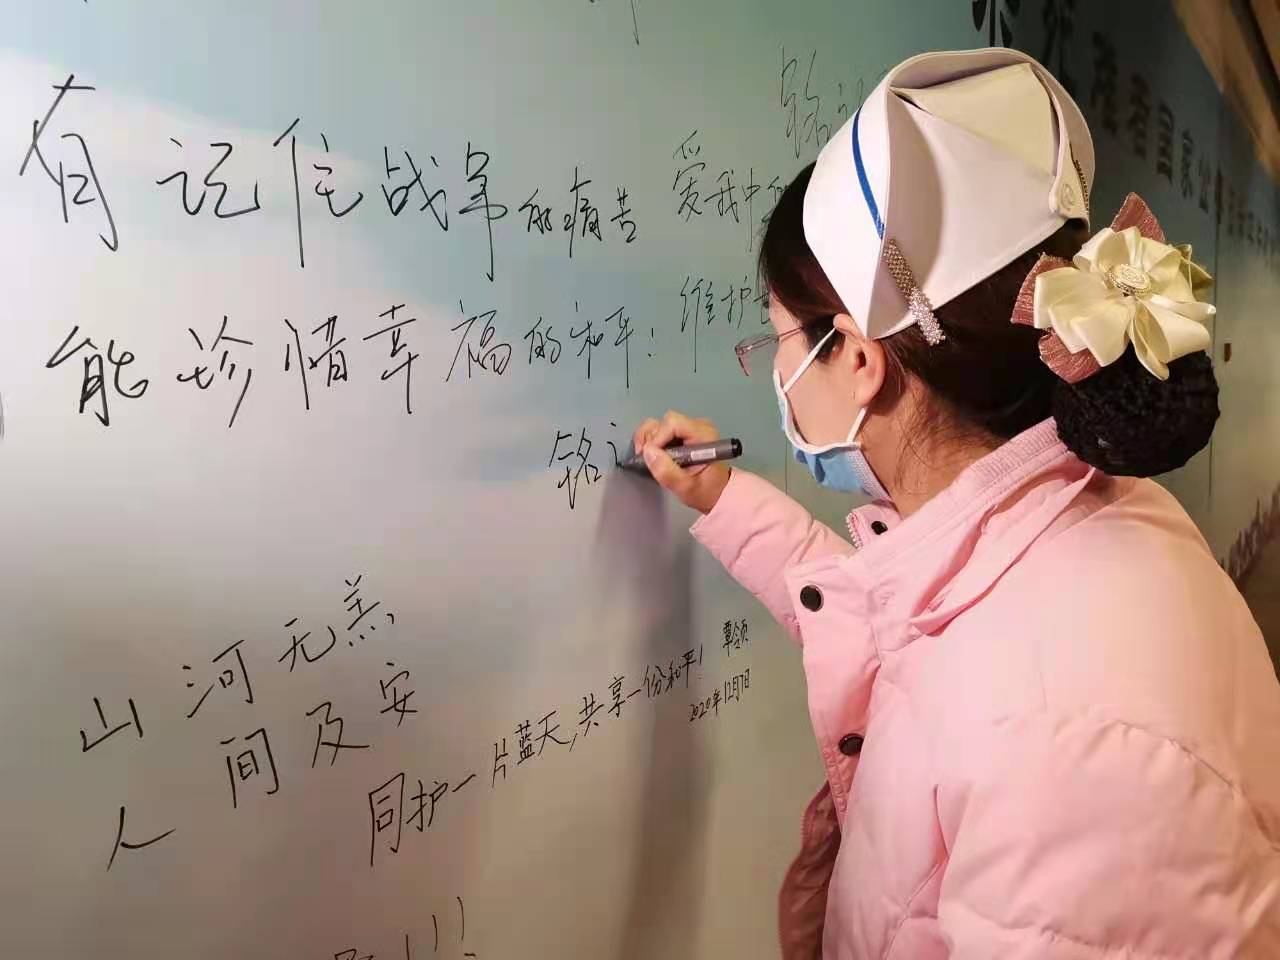 铭记
有记住战争的痛苦
爱我中
能珍惜幸福的和平!
维护
铭
山河无恙,
人间及安
同护一片蓝天,共享一份和平!
覃领
2020年12月7日
国家公